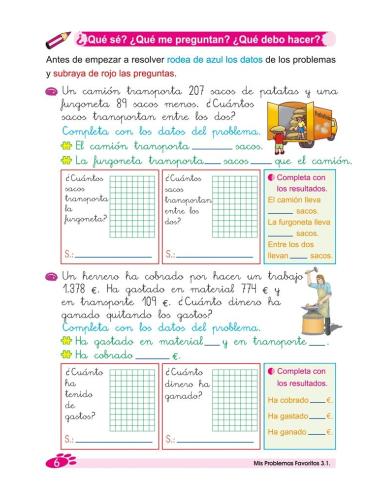 ¿Qué sé? ¿Qué me preguntan? ¿Qué debo hacer?
Antes de empezar a resolver rodea de azul los datos de los problemas
y subraya de rojo las preguntas.
Un camión transporta 207 sacos de patatas y una
furgoneta 89 sacos menos. ¿Cuántos
sacos transportan entre los dos?
Completa con los datos del problema.
El camión transporta ______ sacos.
La furgoneta transporta ____ sacos ____ que el camión.
¿Cuántos
sacos
transporta
la
furgoneta?
S.:
¿Cuántos
sacos
transportan
entre los
dos?
S.:
Completa con
los resultados.
El camión lleva
______ sacos.
La furgoneta lleva
______ sacos.
Entre los dos
llevan ____ sacos.
Un herrero ha cobrado por hacer un trabajo
1.378 €. Ha gastado en material 774 € y
en transporte 109 €. ¿Cuánto dinero ha
ganado quitando los gastos?
Completa con los datos del problema.
Ha gastado en material ___ y en transporte ___.
Ha cobrado ______ €.
¿Cuánto
ha
tenido
de
gastos?
S.:
¿Cuánto
dinero ha
ganado?
S.:
Completa con
los resultados.
Ha cobrado ____ €.
Ha gastado ____ €.
Ha ganado ____ €.
6
Mis Problemas Favoritos 3.1.